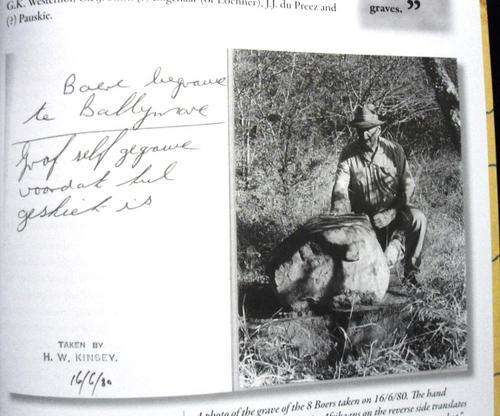 G.K. Westerhof,
J.J. du Preez and
(?) Pauskie.
graves.”
Boere begrawe
te Ballymore
Graf self gegrawe
voordat hul
geskiet is
TAKEN BY
H. W. KINSEY.
16/6/80
A photo of the grave of the 8 Boers taken on 16/6/80. The hand
on the reverse side translates